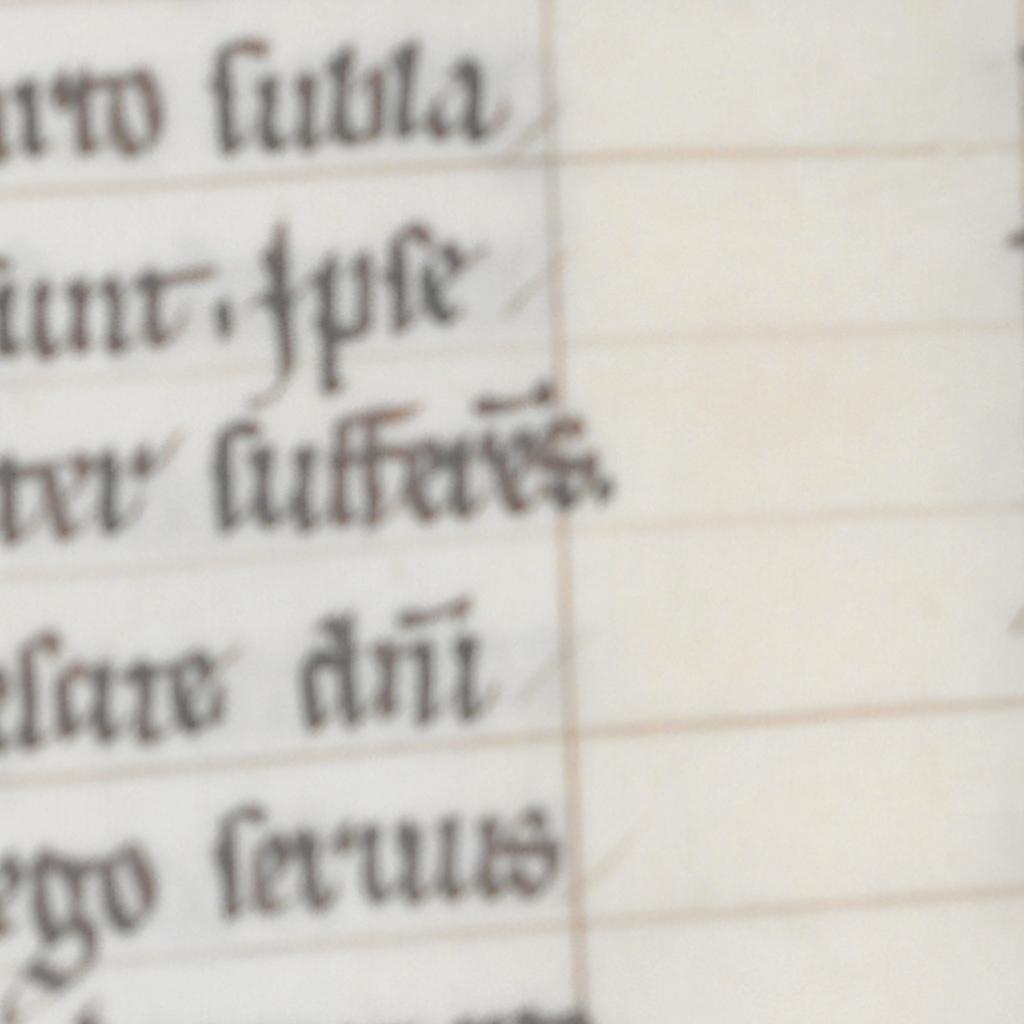 subla
iunt. Ipse
ter sufferēs.
esare dn̄i
ego seruus